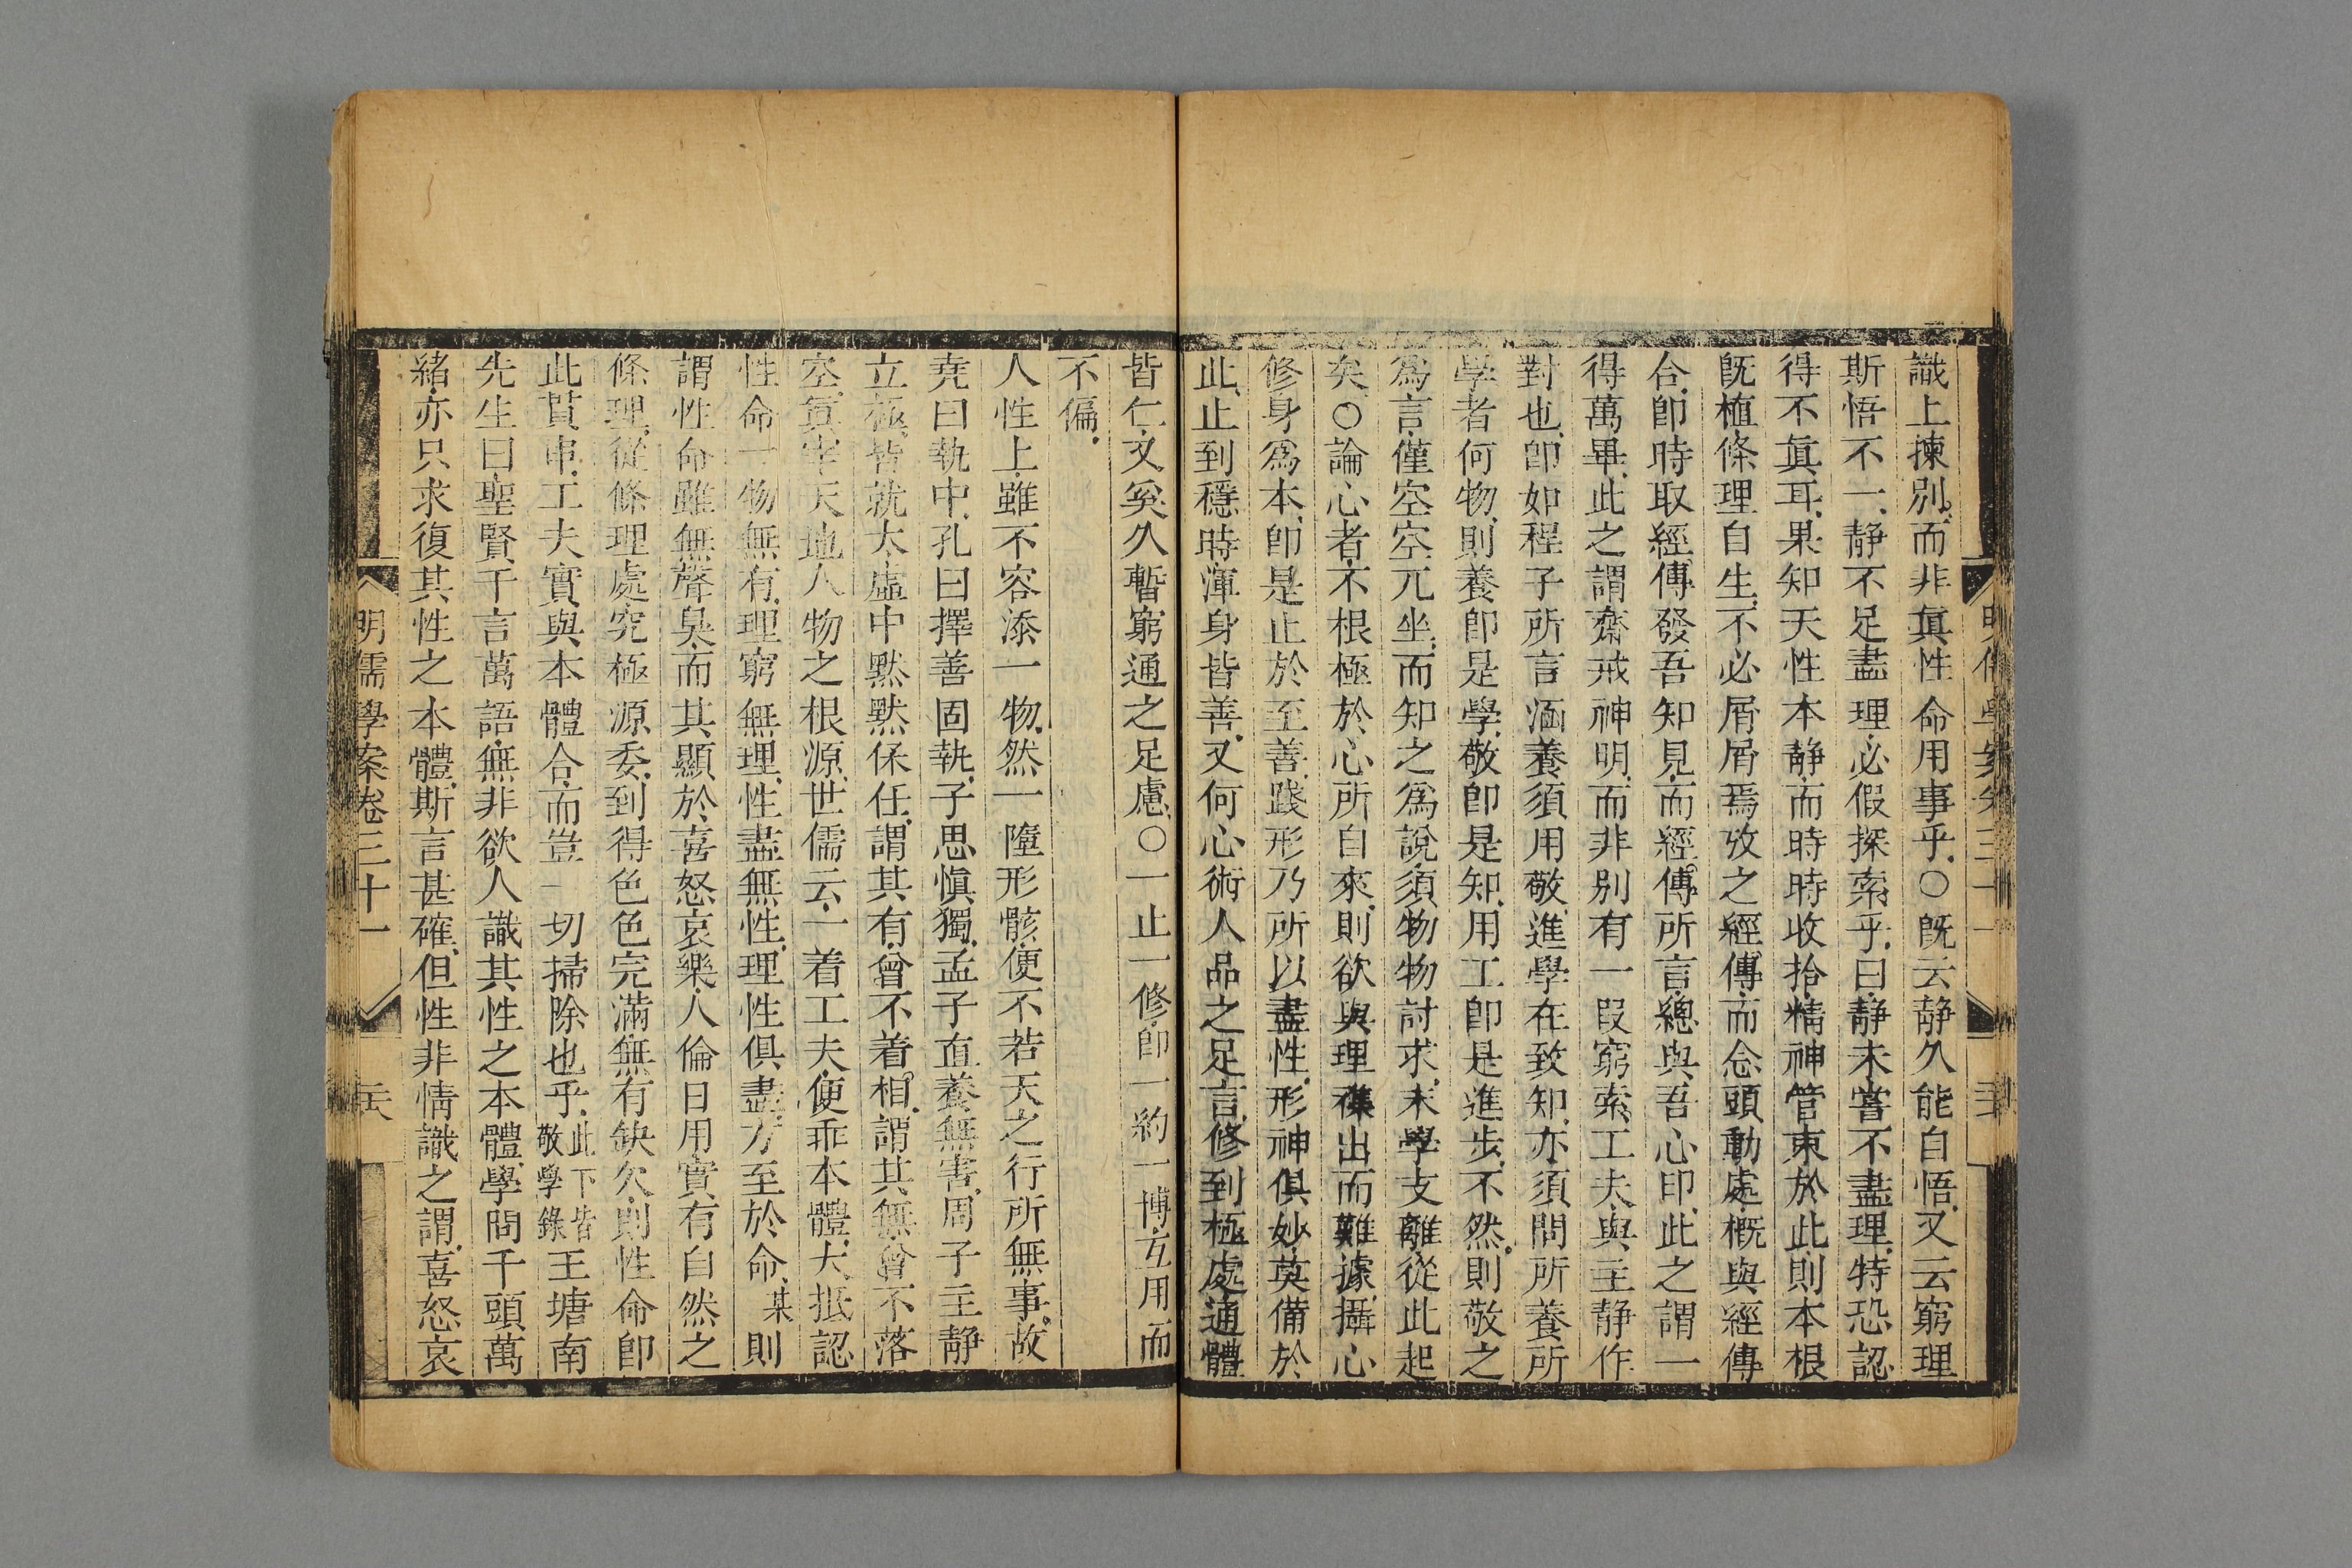 識上揀別而非眞性命用事乎○旣云靜久能自悟又云窮理
斯悟不一靜不足盡理必假探索乎曰靜未嘗不盡理特恐認
得不眞耳果知天性本靜而時時收拾精神管束於此則本根
旣植條理自生不必屑屑焉攷之經傳而念頭動處槪與經傳
合卽時取經傳發吾知見而經傳所言總與吾心印此之謂一
得萬畢此之謂齋戒神明而非別有一段窮索工夫與主靜作
對也卽如程子所言涵養須用敬進學在致知亦須問所養所
學者何物則養卽是學敬卽是知用工卽是進步不然則敬之
爲言僅空空兀坐而知之爲說須物物討求末學支離從此起
矣○論心者不根極於心所自來則欲與理襍出而難據攝心
修身爲本卽是止於至善踐形乃所以盡性形神俱妙莫備於
此止到穩時渾身皆善又何心術人品之足言修到極處通體
皆仁又奚久暫窮通之足慮○一止一修卽一約一博互用而
不偏
人性上雖不容添一物然一墮形骸便不若天之行所無事故
堯曰執中孔曰擇善固執子思愼獨孟子直養無害周子主靜
立極皆就太虛中默默保任謂其有曾不着相謂其無曾不落
空眞宰天地人物之根源世儒云一着工夫便乖本體大抵認
性命一物無有理窮無理性盡無性理性俱盡方至於命某則
謂性命雖無聲臭而其顯於喜怒哀樂人倫日用實有自然之
條理從條理處究極源委到得色色完滿無有缺欠則性命卽
此貫串工夫實與本體合而豈一切掃除也乎此下皆敬學錄王塘南
先生曰聖賢千言萬語無非欲人識其性之本體學問千頭萬
緒亦只求復其性之本體斯言甚確但性非情識之謂喜怒哀
明儒學案卷三十一